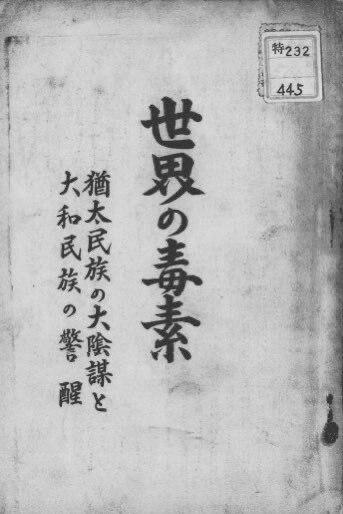 世界の毒素
猶太民族の大陰謀と
大和民族の警醒
特232
445